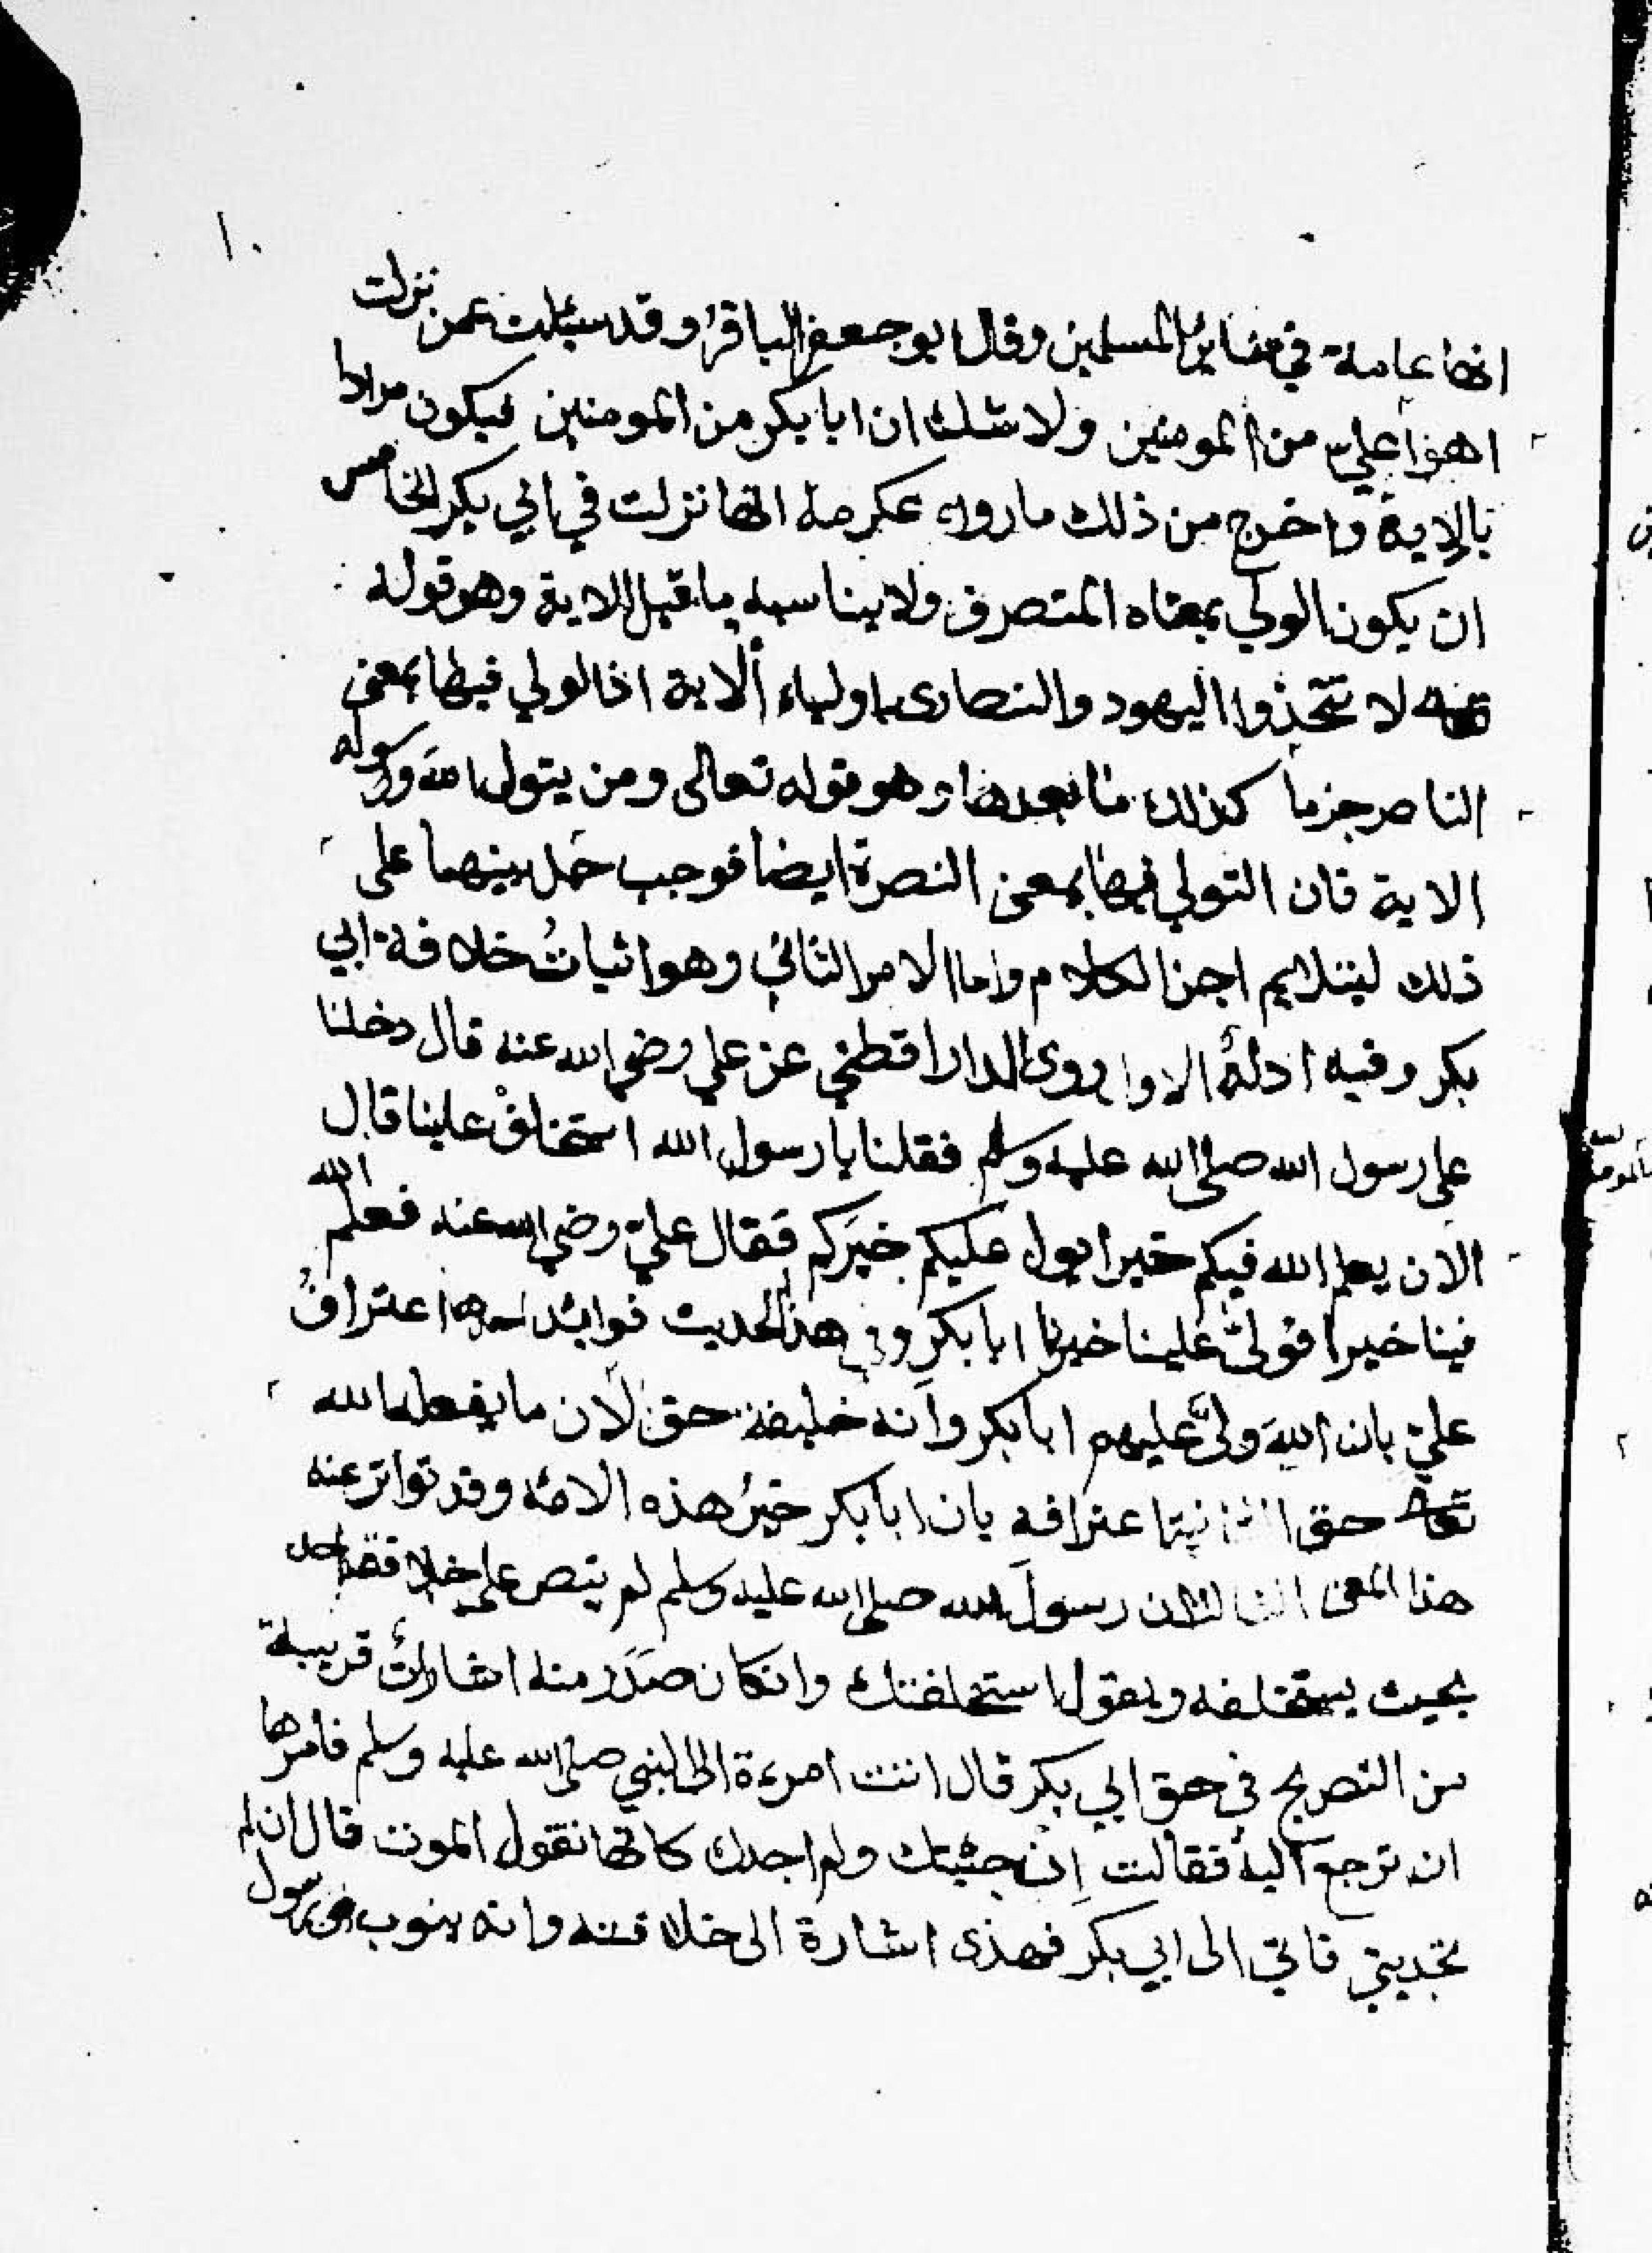 ١٠
انها عامة في سائر المسلمين وقال ابو جعفر الباقر وقد سئلت عمن نزلت
اهو علي من المومنين ولا شك ان ابا بكر من المومنين فيكون مرادا
بالاية واخرج من ذلك ما رواه عكرمة انها نزلت في ابي بكر الخامس
ان يكون الولي بمعناه المتصرف ولا يناسبه ما قبل الاية وهو قوله
لا تتخذوا اليهود والنصارى اولياء ألاية اذ الولي فيها بمعنى
الناصر جزما كذلك ما بعدها وهو قوله تعالى ومن يتول الله ورسوله
الاية فان التولي فيها بمعنى النصرة ايضا فوجب حمل بينهما على
ذلك ليتلايم اجزا الكلام واما الامر الثاني وهو اثبات خلافة ابي
بكر وفيه ادلة الاول روى الدارا قطني عن علي رضي الله عنه قال دخلنا
على رسول الله صلى الله عليه وسلم فقلنا يا رسول الله استخلف علينا قال
الان يعلم الله فيكم خيرا يول عليكم خيركم فقال علي رضي الله عنه فعلم الله
فينا خيرا فولى علينا خيرنا ابا بكر وفي هذا الحديث فوائد احدها اعتراف
علي بان الله ولى عليهم ابا بكر وانه خليفة حق لان ما يفعله الله
تعالى حق الثانية اعترافه بان ابا بكر خير هذه الامة وقد تواتر عنه
هذا المعنى الثالث ان رسول الله صلى الله عليه وسلم لم ينص على خلافة احد
بحيث يستخلفه ويقول استخلفتك وانكان صدر منه اشارات قريبة
من التصريح في حق ابي بكر قال اتت امرءة الى النبي صلى الله عليه وسلم فأمرها
ان ترجع اليه فقالت ان جئيتك ولم اجدك كانها تقول الموت قال ان لم
تجديني فاتي الى ابي بكر فهذى اشارة الى خلافته وانه ينوب عن رسول